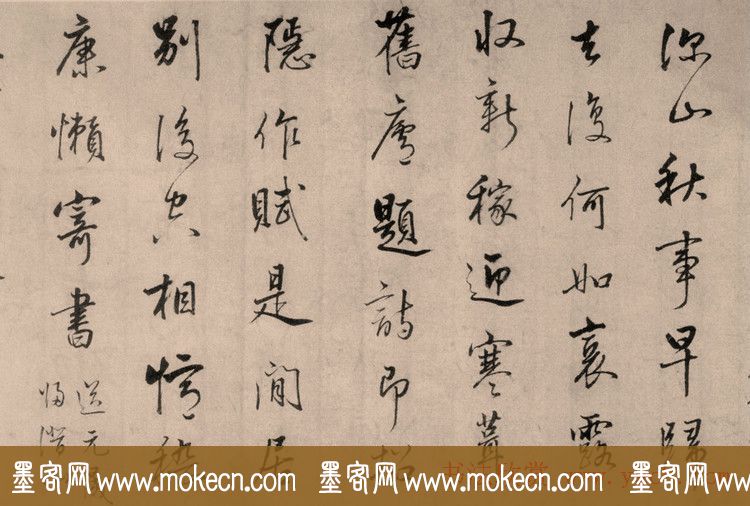 深山秋事早歸
去復何如裛露
收新稼迎寒葺
舊廬題詩即招
隱作賦是閒居
別後空相憶嵇
康懶寄書
送元晟
歸潛
墨客网 www.mokecn.com 墨客网 www.mokecn.com 墨客网 www